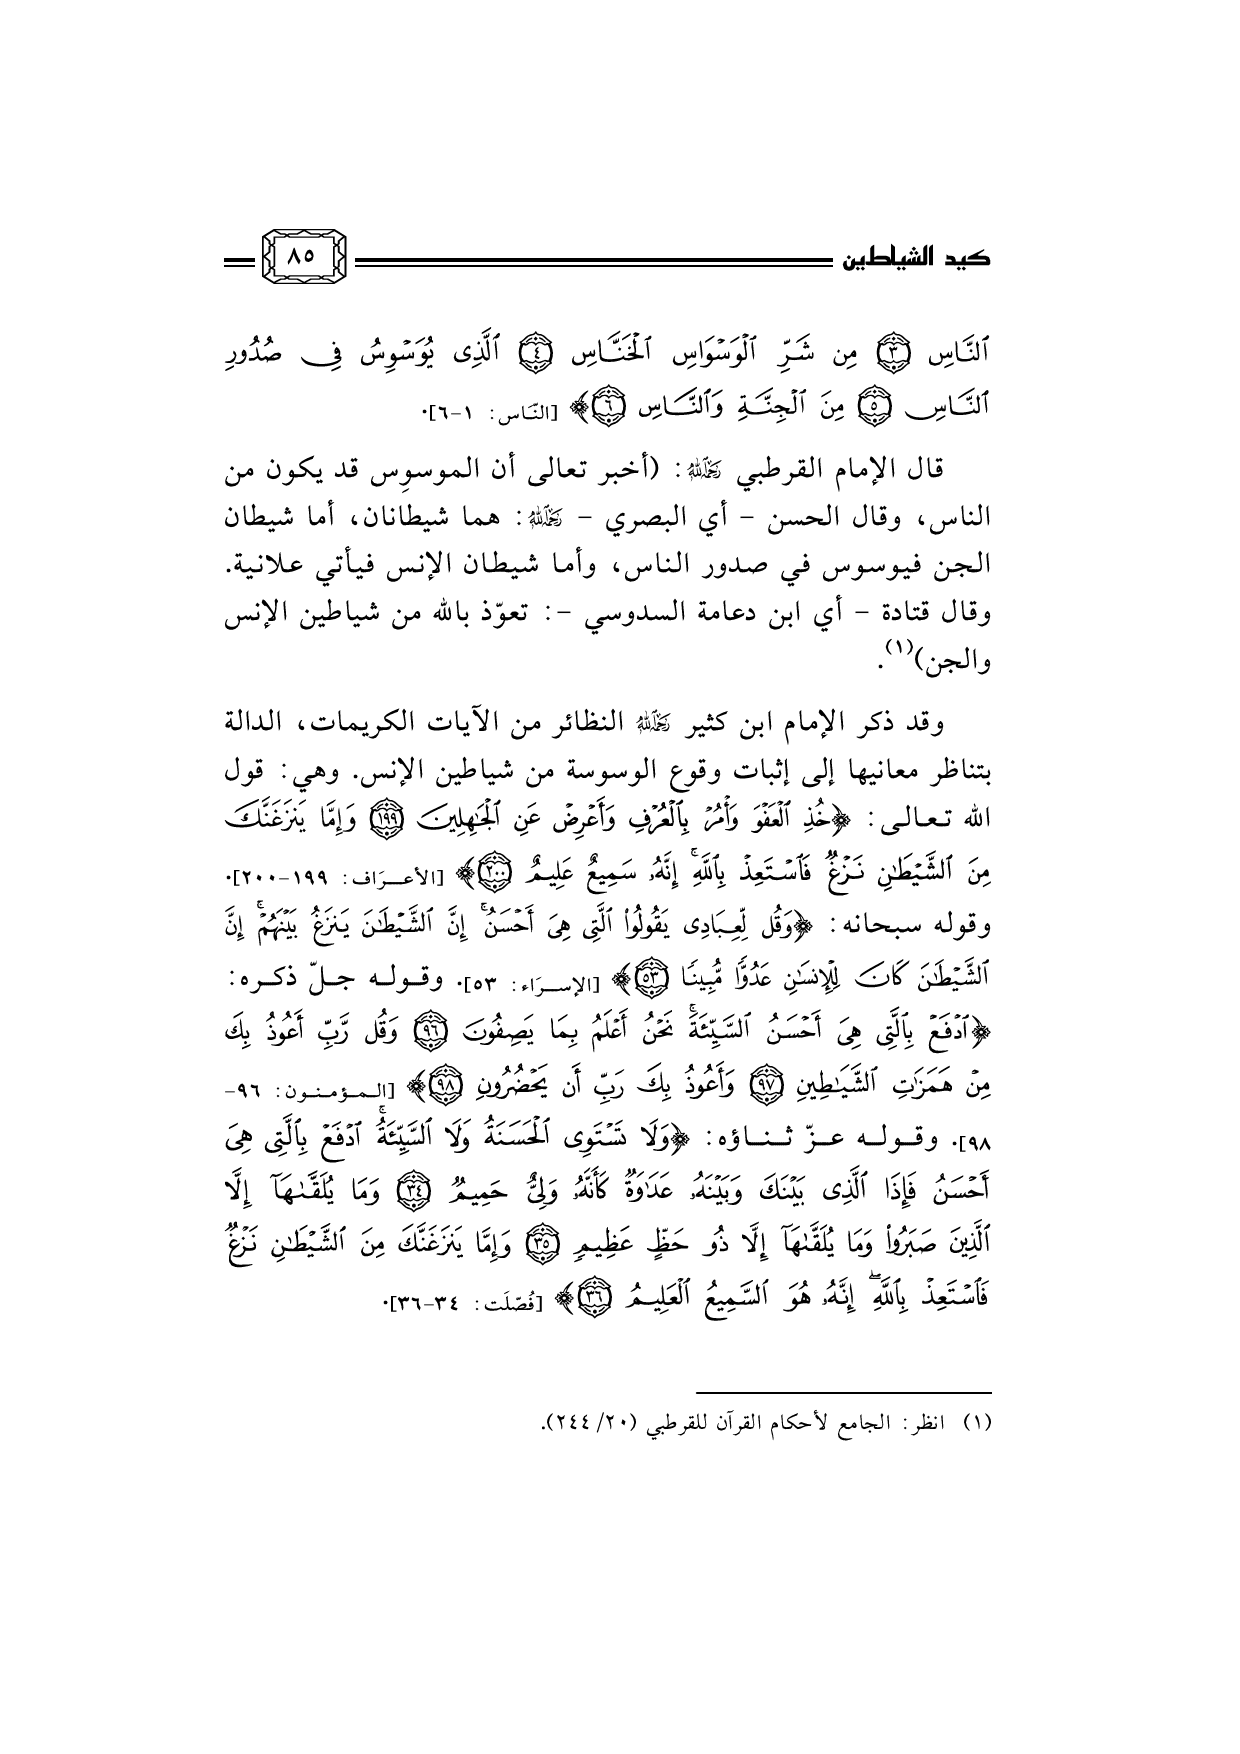 كيد الشياطين ٨٥
ٱلنَّاسِ ٣ مِن شَرِّ ٱلْوَسْوَاسِ ٱلْخَنَّاسِ ٤ ٱلَّذِى يُوَسْوِسُ فِى صُدُورِ
ٱلنَّاسِ ٥ مِنَ ٱلْجِنَّةِ وَٱلنَّاسِ ٦﴾ [النّاس: ١-٦].
قال الإمام القرطبي رحمه الله: (أخبر تعالى أن الموسوِس قد يكون من
الناس، وقال الحسن - أي البصري - رحمه الله: هما شيطانان، أما شيطان
الجن فيوسوس في صدور الناس، وأما شيطان الإنس فيأتي علانية.
وقال قتادة - أي ابن دعامة السدوسي -: تعوّذ بالله من شياطين الإنس
والجن)(١).
وقد ذكر الإمام ابن كثير رحمه الله النظائر من الآيات الكريمات، الدالة
بتناظر معانيها إلى إثبات وقوع الوسوسة من شياطين الإنس. وهي: قول
الله تعالى: ﴿خُذِ ٱلْعَفْوَ وَأْمُرْ بِٱلْعُرْفِ وَأَعْرِضْ عَنِ ٱلْجَٰهِلِينَ ١٩٩ وَإِمَّا يَنزَغَنَّكَ
مِنَ ٱلشَّيْطَٰنِ نَزْغٌ فَٱسْتَعِذْ بِٱللَّهِۚ إِنَّهُۥ سَمِيعٌ عَلِيمٌ ٢٠٠﴾ [الأعرَاف: ١٩٩-٢٠٠].
وقوله سبحانه: ﴿وَقُل لِّعِبَادِى يَقُولُوا۟ ٱلَّتِى هِىَ أَحْسَنُۚ إِنَّ ٱلشَّيْطَٰنَ يَنزَغُ بَيْنَهُمْۚ إِنَّ
ٱلشَّيْطَٰنَ كَانَ لِلْإِنسَٰنِ عَدُوًّا مُّبِينًا ٥٣﴾ [الإسرَاء: ٥٣]. وقوله جلّ ذكره:
﴿ٱدْفَعْ بِٱلَّتِى هِىَ أَحْسَنُ ٱلسَّيِّئَةَۚ نَحْنُ أَعْلَمُ بِمَا يَصِفُونَ ٩٦ وَقُل رَّبِّ أَعُوذُ بِكَ
مِنْ هَمَزَٰتِ ٱلشَّيَٰطِينِ ٩٧ وَأَعُوذُ بِكَ رَبِّ أَن يَحْضُرُونِ ٩٨﴾ [المؤمنون: ٩٦-
٩٨]. وقوله عزّ ثناؤه: ﴿وَلَا تَسْتَوِى ٱلْحَسَنَةُ وَلَا ٱلسَّيِّئَةُۚ ٱدْفَعْ بِٱلَّتِى هِىَ
أَحْسَنُ فَإِذَا ٱلَّذِى بَيْنَكَ وَبَيْنَهُۥ عَدَٰوَةٌ كَأَنَّهُۥ وَلِىٌّ حَمِيمٌ ٣٤ وَمَا يُلَقَّىٰهَآ إِلَّا
ٱلَّذِينَ صَبَرُوا۟ وَمَا يُلَقَّىٰهَآ إِلَّا ذُو حَظٍّ عَظِيمٍ ٣٥ وَإِمَّا يَنزَغَنَّكَ مِنَ ٱلشَّيْطَٰنِ نَزْغٌ
فَٱسْتَعِذْ بِٱللَّهِۖ إِنَّهُۥ هُوَ ٱلسَّمِيعُ ٱلْعَلِيمُ ٣٦﴾ [فُصّلَت: ٣٤-٣٦].
(١) انظر: الجامع لأحكام القرآن للقرطبي (٢٠/ ٢٤٤).